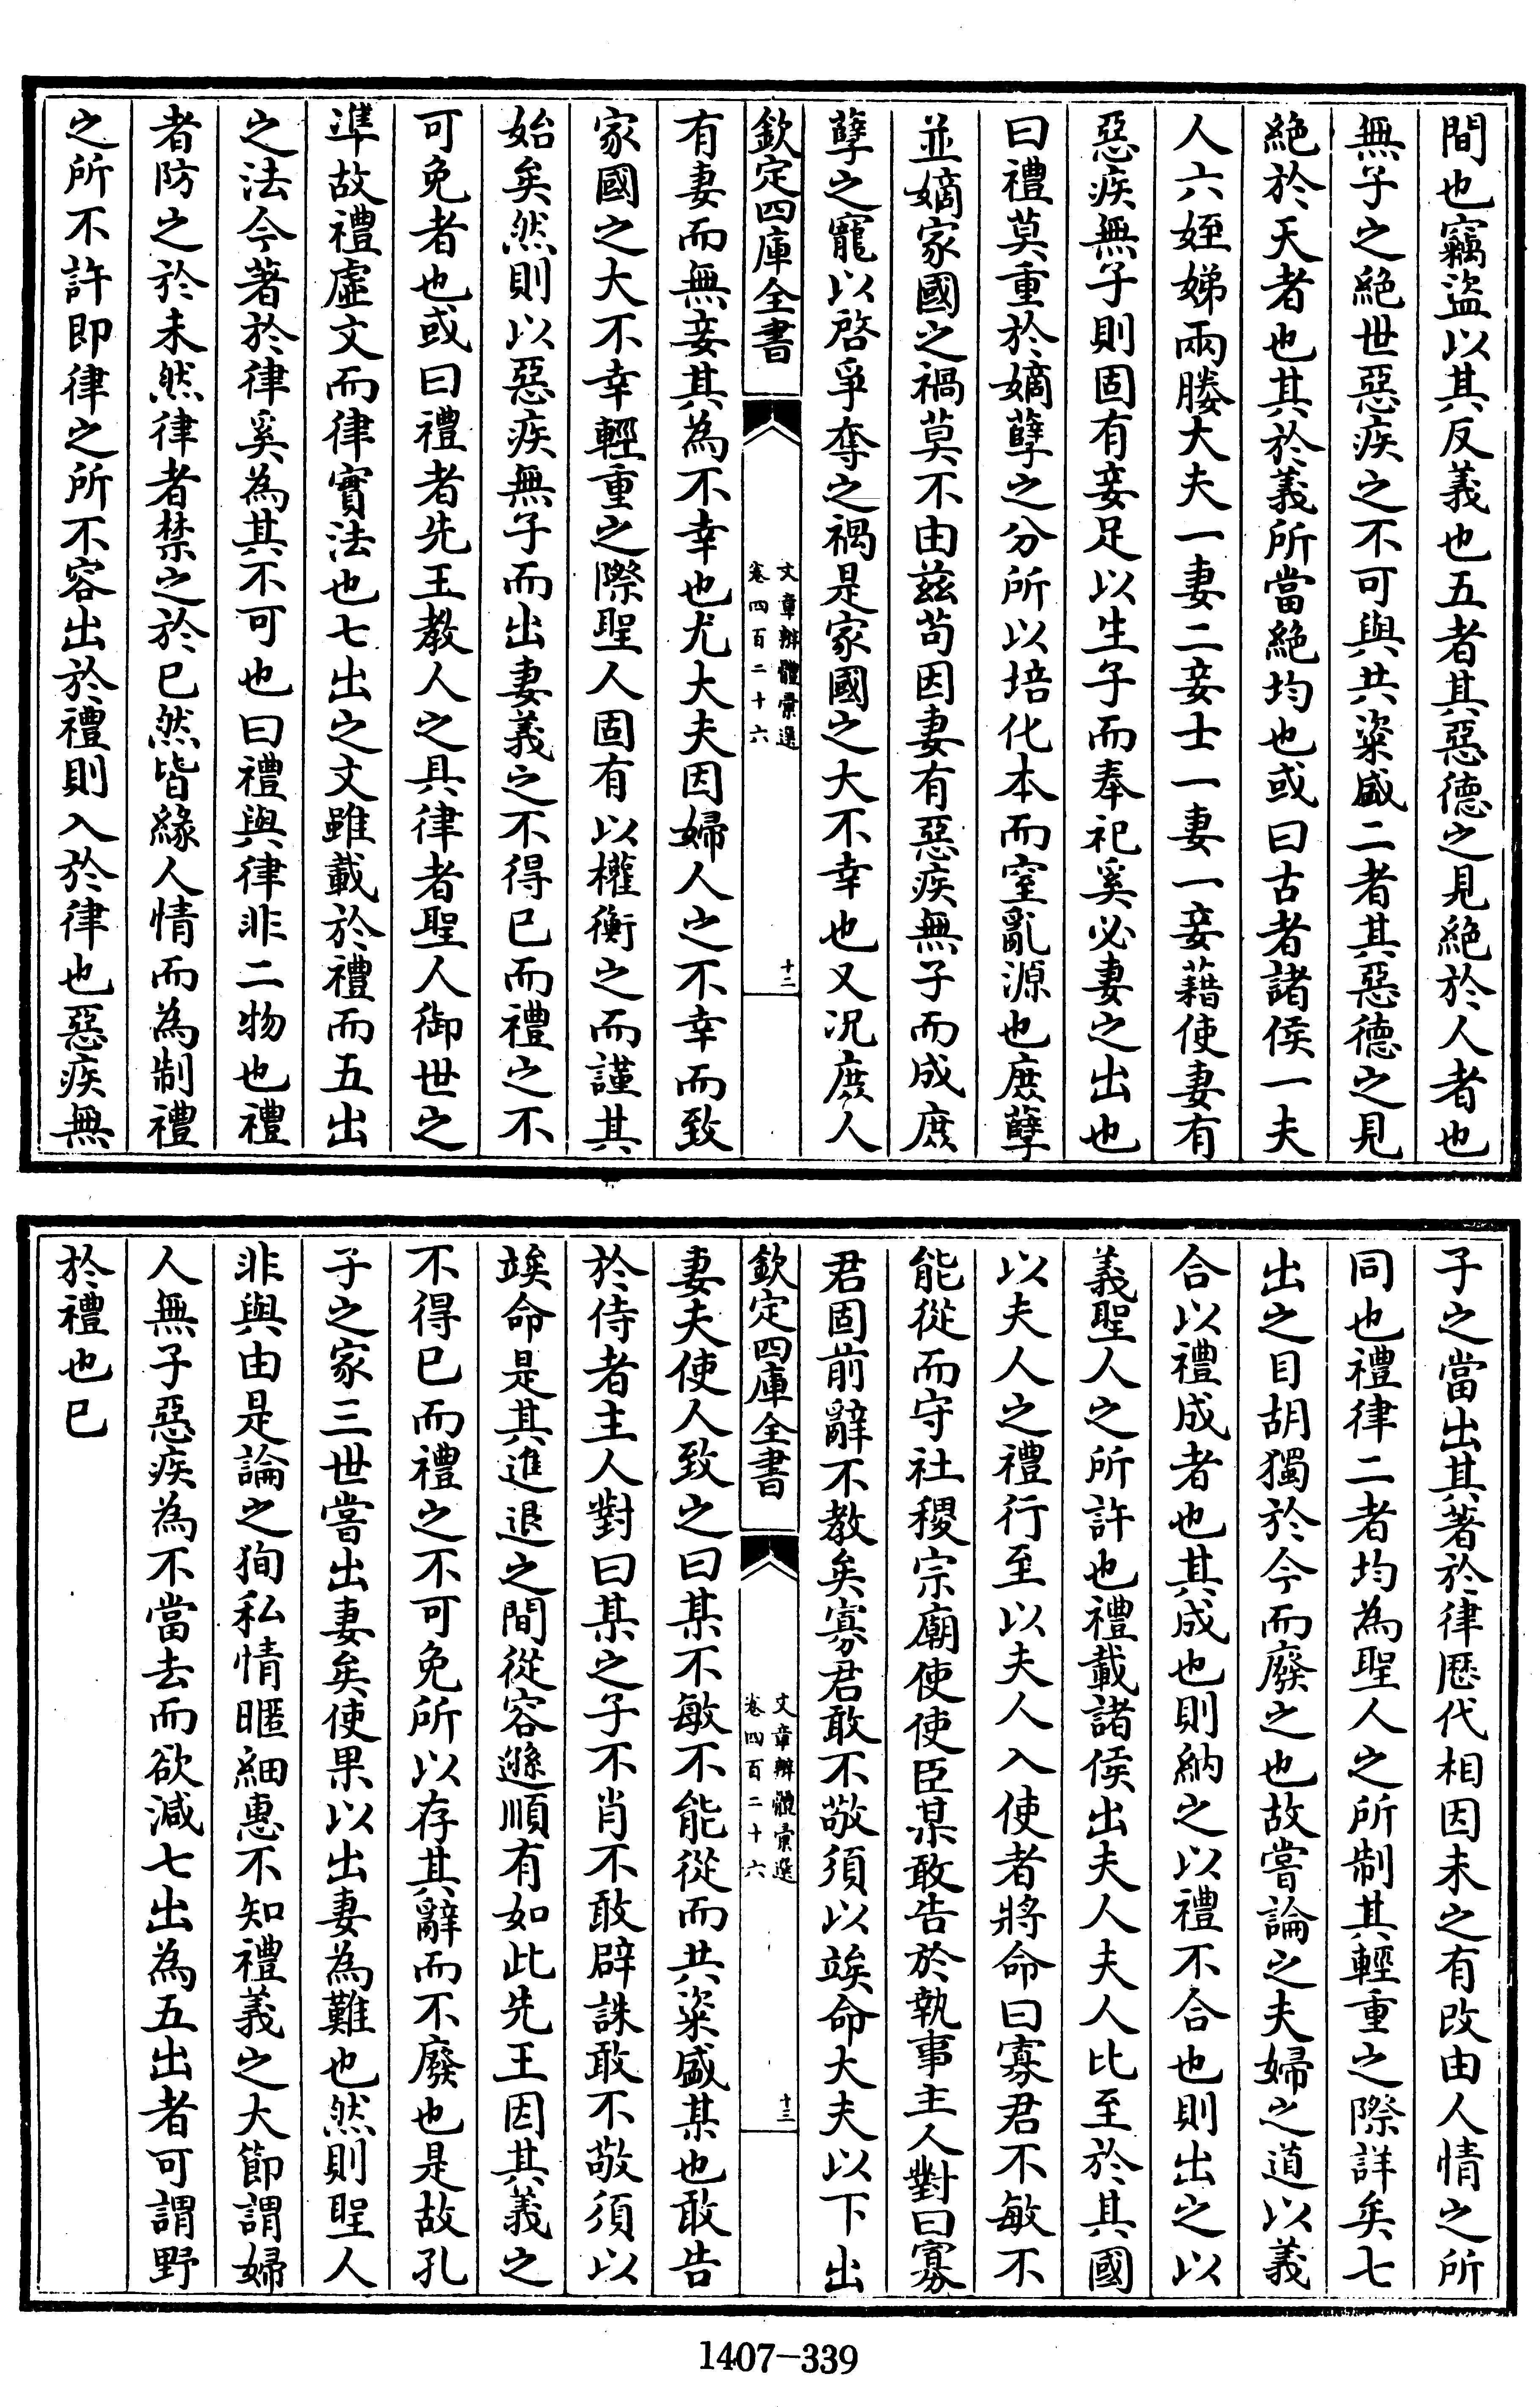 間也竊盜以其反義也五者其惡德之見絕於人者也
無子之絕世惡疾之不可與共粢盛二者其惡德之見
絕於天者也其於義所當絕均也或曰古者諸侯一夫
人六姪娣兩媵大夫一妻二妾士一妻一妾藉使妻有
惡疾無子則固有妾足以生子而奉祀奚必妻之出也
曰禮莫重於嫡孽之分所以培化本而窒亂源也庶孽
並嫡家國之禍莫不由茲苟因妻有惡疾無子而成庶
孽之寵以啓爭奪之禍是家國之大不幸也又况庶人
欽定四庫全書
文章辨體彙選
卷四百二十六
十二
有妻而無妾其為不幸也尤大夫因婦人之不幸而致
家國之大不幸輕重之際聖人固有以權衡之而謹其
始矣然則以惡疾無子而出妻義之不得已而禮之不
可免者也或曰禮者先王教人之具律者聖人御世之
準故禮虛文而律實法也七出之文雖載於禮而五出
之法今著於律奚為其不可也曰禮與律非二物也禮
者防之於未然律者禁之於已然皆緣人情而為制禮
之所不許即律之所不容出於禮則入於律也惡疾無
子之當出其著於律歷代相因未之有改由人情之所
同也禮律二者均為聖人之所制其輕重之際詳矣七
出之目胡獨於今而廢之也故嘗論之夫婦之道以義
合以禮成者也其成也則納之以禮不合也則出之以
義聖人之所許也禮載諸侯出夫人夫人比至於其國
以夫人之禮行至以夫人入使者將命曰寡君不敏不
能從而守社稷宗廟使使臣某敢告於執事主人對曰寡
君固前辭不教矣寡君敢不敬須以竢命大夫以下出
欽定四庫全書
文章辨體彙選
卷四百二十六
十三
妻夫使人致之曰某不敏不能從而共粢盛某也敢告
於侍者主人對曰某之子不肖不敢辟誅敢不敬須以
竢命是其進退之間從容遜順有如此先王因其義之
不得已而禮之不可免所以存其辭而不廢也是故孔
子之家三世嘗出妻矣使果以出妻為難也然則聖人
非與由是論之狥私情暱細惠不知禮義之大節謂婦
人無子惡疾為不當去而欲減七出為五出者可謂野
於禮也已
1407-339